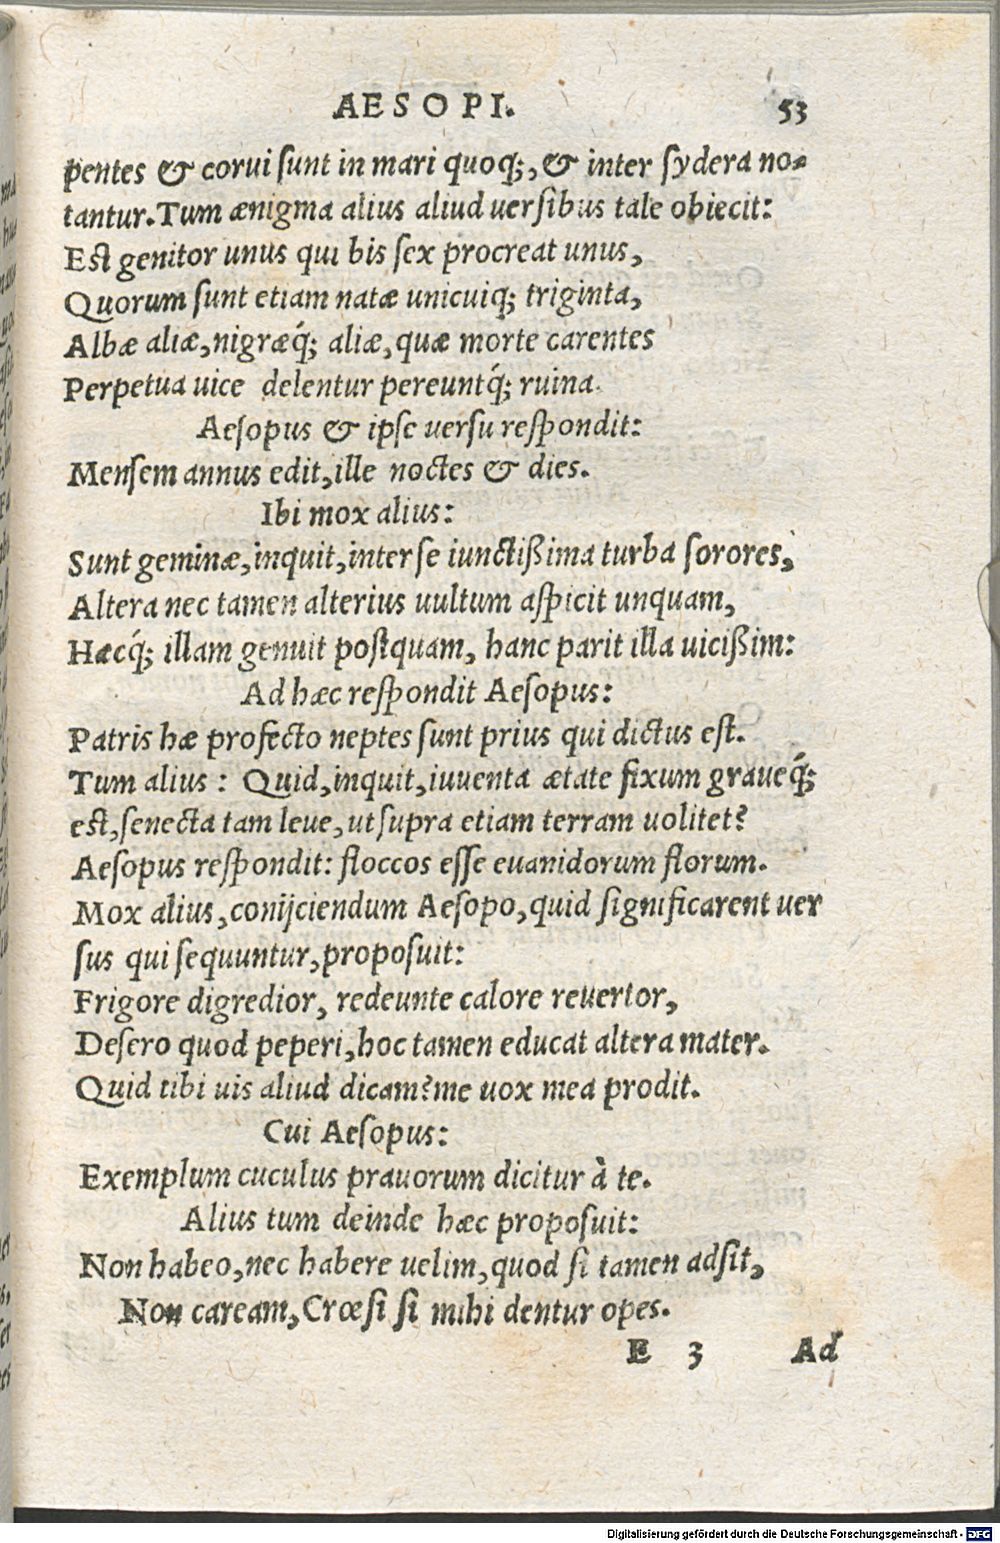 AESOPI. 53
pentes & corui ſunt in mari quoq;, & inter ſydera no-
tantur. Tum ænigma alius aliud uerſibus tale obiecit:
Eſt genitor unus qui bis ſex procreat unus,
Quorum ſunt etiam natæ unicuiq; triginta,
Albæ aliæ, nigræq́; aliæ, quæ morte carentes
Perpetua uice delentur pereuntq́; ruina.
Aeſopus & ipſe uerſu reſpondit:
Menſem annus edit, ille noctes & dies.
Ibi mox alius:
Sunt geminæ, inquit, inter ſe iunctißima turba ſorores,
Altera nec tamen alterius uultum aſpicit unquam,
Hæcq́; illam genuit poſtquam, hanc parit illa uicißim:
Ad hæc reſpondit Aeſopus:
Patris hæ profecto neptes ſunt prius qui dictus eſt.
Tum alius: Quid, inquit, iuuenta ætate fixum graueq́;
eſt, ſenecta tam leue, ut ſupra etiam terram uolitet?
Aeſopus reſpondit: floccos eſſe euanidorum florum.
Mox alius, conijciendum Aeſopo, quid ſignificarent uer
ſus qui ſequuntur, propoſuit:
Frigore digredior, redeunte calore reuertor,
Deſero quod peperi, hoc tamen educat altera mater.
Quid tibi uis aliud dicam? me uox mea prodit.
Cui Aeſopus:
Exemplum cuculus prauorum dicitur à te.
Alius tum deinde hæc propoſuit:
Non habeo, nec habere uelim, quod ſi tamen adſit,
Non caream, Crœſi ſi mihi dentur opes.
E 3 Ad
Digitalisierung gefördert durch die Deutsche Forschungsgemeinschaft - DFG